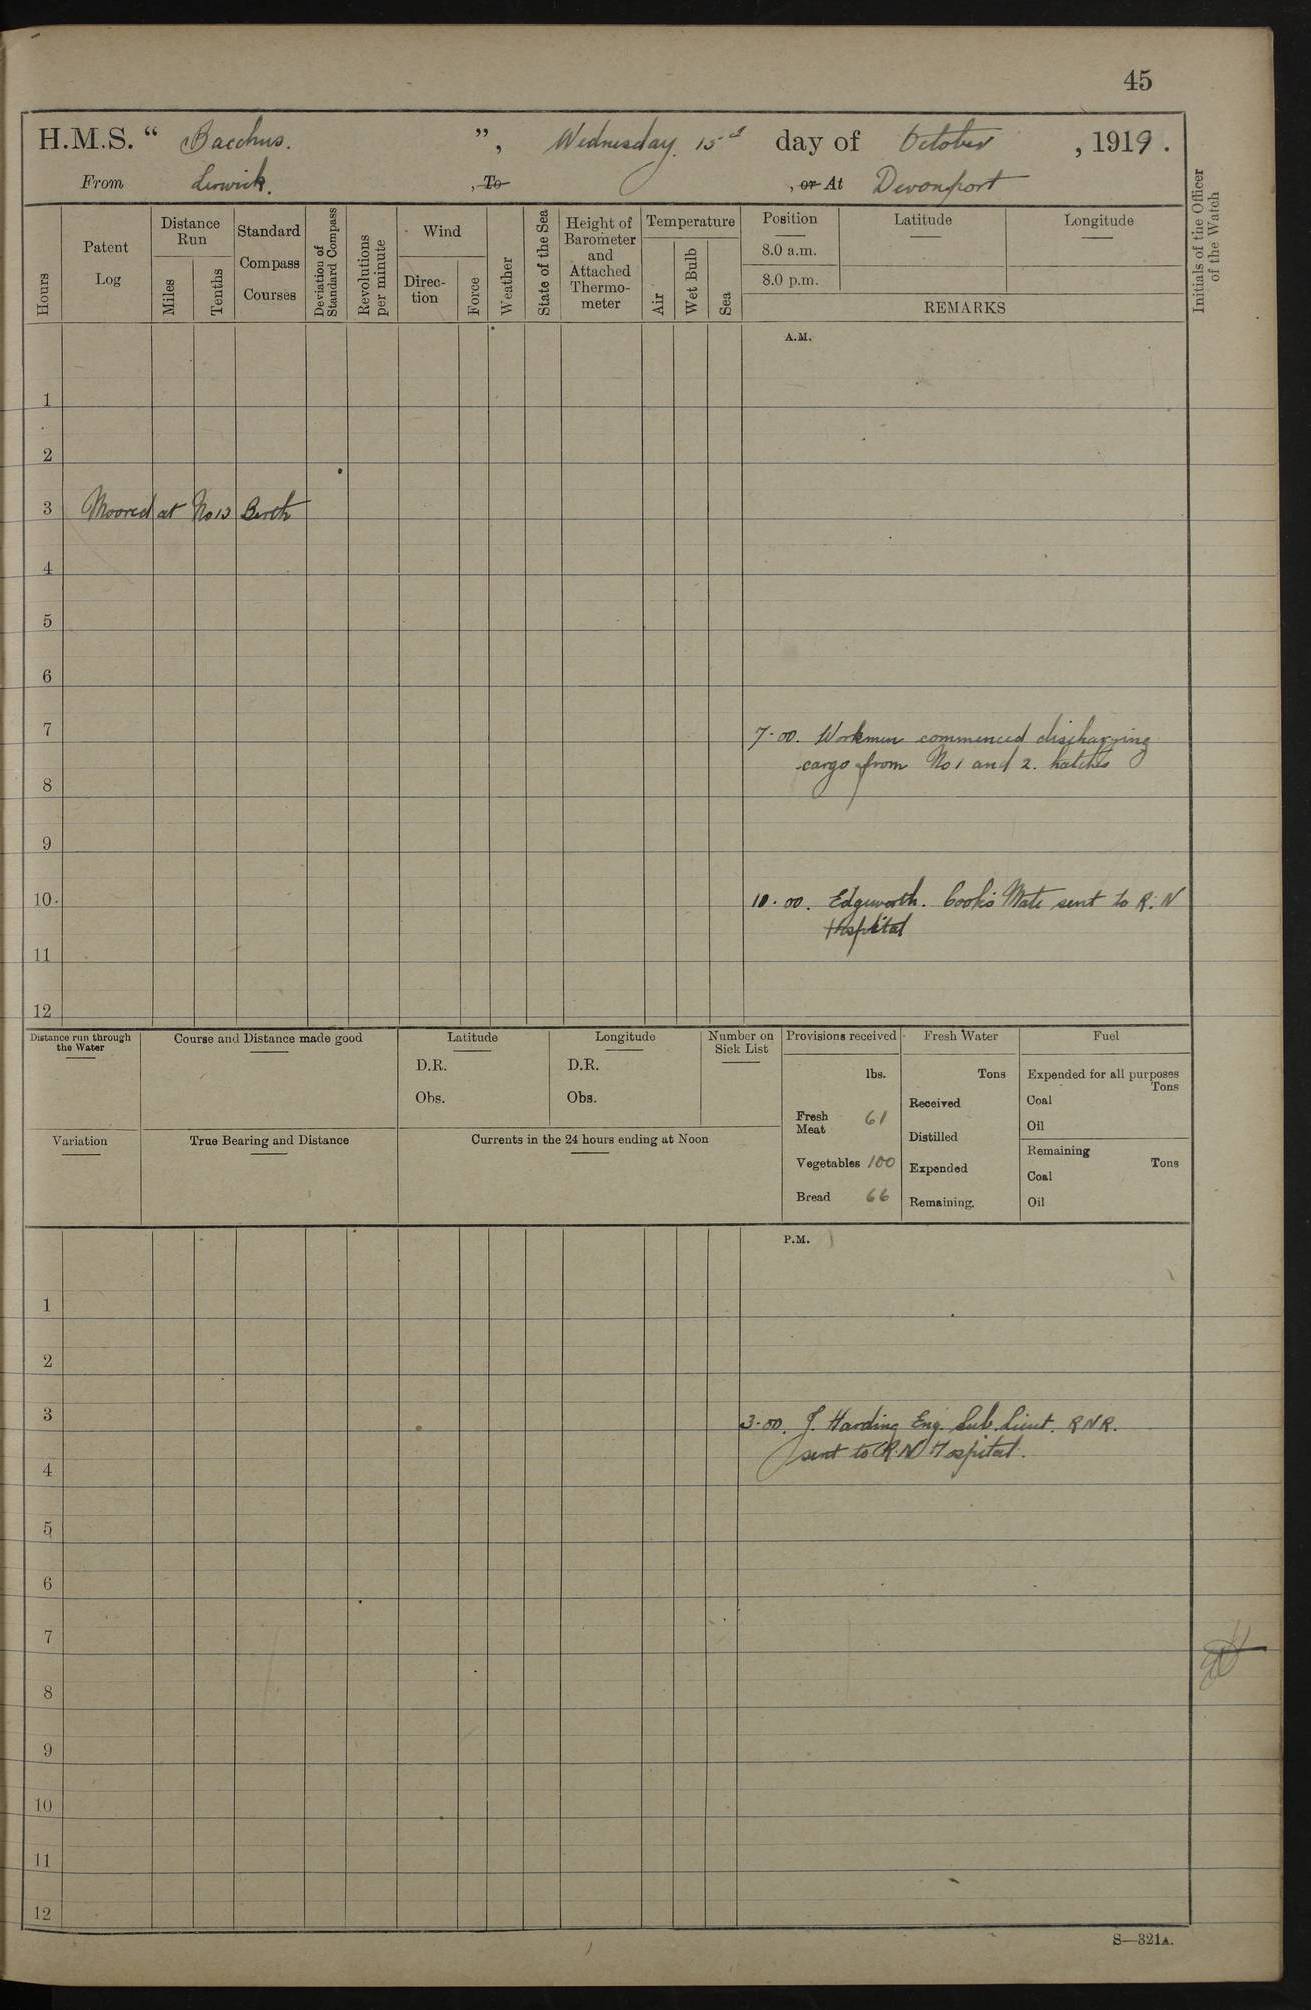 45
H.M.S. “ Bacchus. ”, Wednesday. 15 day of October, 1919.
From Lerwick. , To , or At Devonport
Hours
Patent Log
Distance Run
Miles
Tenths
Standard Compass Courses
Deviation of Standard Compass
Revolutions per minute
Wind
Direction
Force
Weather
State of the Sea
Height of Barometer and Attached Thermometer
Temperature
Air
Wet Bulb
Sea
Position
8.0 a.m.
8.0 p.m.
Latitude
Longitude
REMARKS
Initials of the Officer of the Watch
A.M.
1
2
3 Moored at No 13 Berth
4
5
6
7 7-00. Workmen commenced discharging
cargo from No 1 and 2. hatches
8
9
10. 10-00. Edgeworth. Cook's Mate sent to R.N
Hospital
11
12
Distance run through the Water
Course and Distance made good
Latitude
D.R.
Obs.
Longitude
D.R.
Obs.
Number on Sick List
Provisions received
lbs.
Fresh Meat 61
Vegetables 100
Bread 66
Fresh Water
Tons
Received
Distilled
Expended
Remaining.
Fuel
Expended for all purposes
Tons
Coal
Oil
Remaining
Tons
Coal
Oil
Variation
True Bearing and Distance
Currents in the 24 hours ending at Noon
P.M.
1
2
3 3-00. J. Harding Eng. Sub. Lieut. RNR.
sent to R.N Hospital.
4
5
6
7
8
9
10
11
12
S—321A.